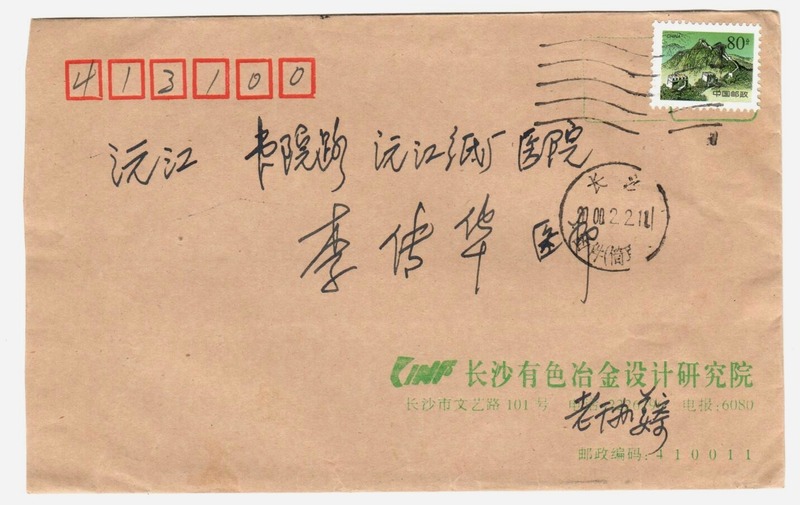 413100
CHINA 80分
中国邮政
沅江 书院路 沅江纸厂医院
李传华 医师
长沙
2000.2.2.11
CINF 长沙有色冶金设计研究院
长沙市文艺路101号 电报:6080
老干办
邮政编码:410011